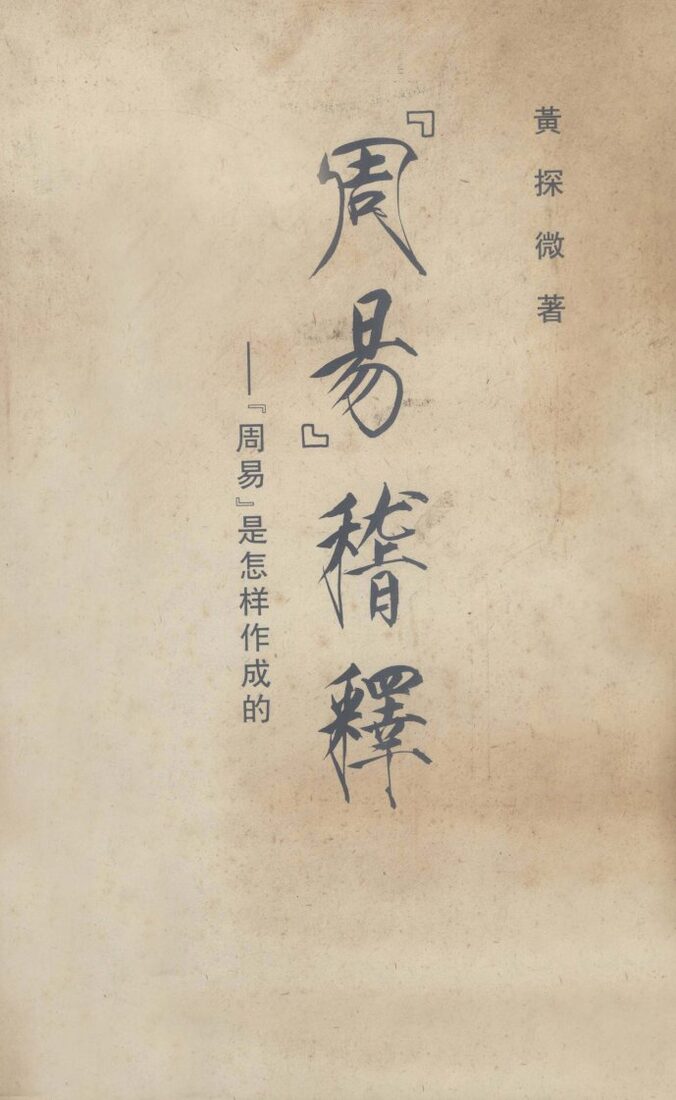 黃探微著
『周易』稽釋
——『周易』是怎样作成的